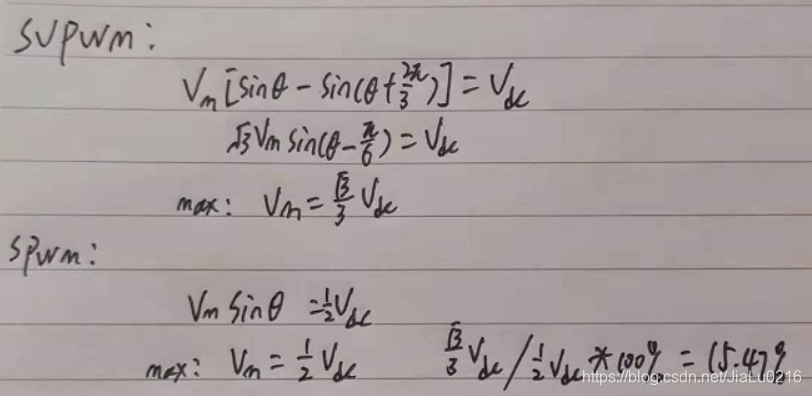 SVPWM:
Vm[sinθ - sin(θ+2π/3)] = Vdc
√3 Vm sin(θ-π/6) = Vdc
max: Vm = √3/3 Vdc
SPWM:
Vm sinθ = 1/2 Vdc
max: Vm = 1/2 Vdc  √3/3 Vdc / 1/2 Vdc * 100% = 15.47%
https://blog.csdn.net/JiaLu0216